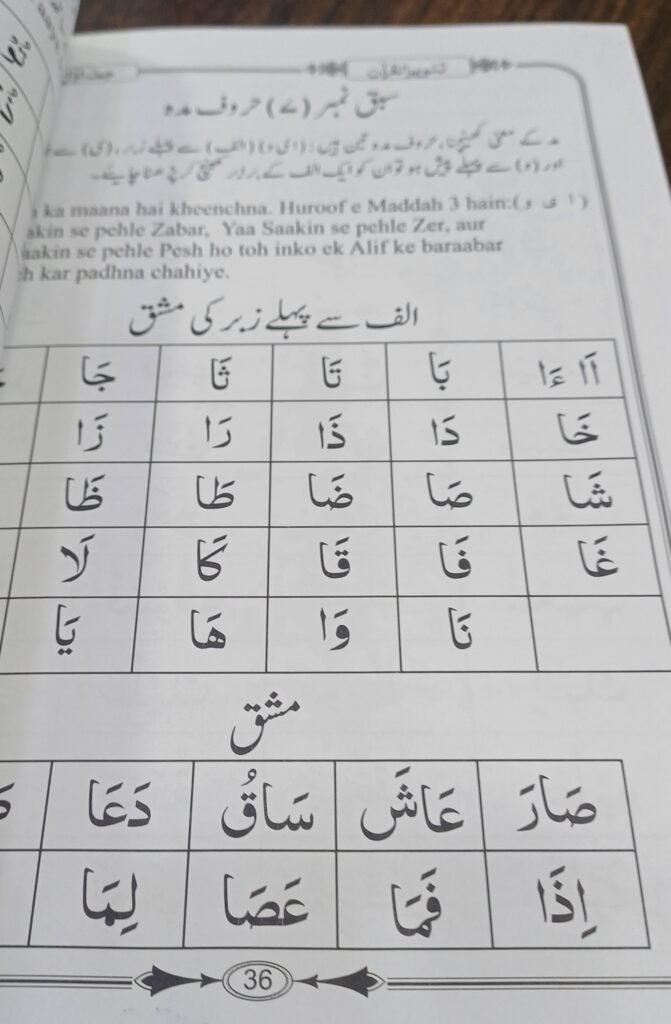 تنویر القرآن
سبق نمبر (۷) حروف مدہ
مد کے معنی کھینچنا، حروف مدہ تین ہیں: (ا ی و) (الف) سے پہلے زبر، (ی) سے
اور (و) سے پہلے پیش ہو تو ان کو ایک الف کے برابر کھینچ کر پڑھنا چاہئے۔
ka maana hai kheenchna. Huroof e Maddah 3 hain:(ا ی و)
akin se pehle Zabar, Yaa Saakin se pehle Zer, aur
aakin se pehle Pesh ho toh inko ek Alif ke baraabar
h kar padhna chahiye.
الف سے پہلے زبر کی مشق
اَا ءَا بَا تَا ثَا جَا
خَا دَا ذَا رَا زَا
شَا صَا ضَا طَا ظَا
غَا فَا قَا كَا لَا
نَا وَا هَا يَا
مشق
صَارَ عَاشَ سَاقُ دَعَا
اِذَا فَمَا عَصَا لِمَا
36